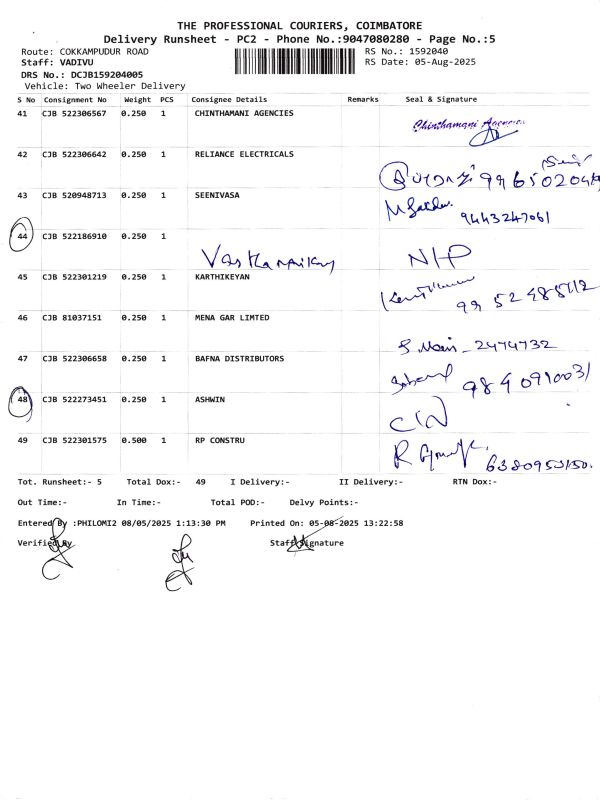 THE PROFESSIONAL COURIERS, COIMBATORE
Delivery Runsheet - PC2 - Phone No.:9047080280 - Page No.:5
Route: COKKAMPUDUR ROAD RS No.: 1592040
Staff: VADIVU RS Date: 05-Aug-2025
DRS No.: DCJB159204005
Vehicle: Two Wheeler Delivery
S No Consignment No Weight PCS Consignee Details Remarks Seal & Signature
41 CJB 522306567 0.250 1 CHINTHAMANI AGENCIES Chinthamani Agencies
42 CJB 522306642 0.250 1 RELIANCE ELECTRICALS
43 CJB 520948713 0.250 1 SEENIVASA 9443247061
44 CJB 522186910 0.250 1 N/P
45 CJB 522301219 0.250 1 KARTHIKEYAN
46 CJB 81037151 0.250 1 MENA GAR LIMTED S Mani - 2474732
47 CJB 522306658 0.250 1 BAFNA DISTRIBUTORS 9840910031
48 CJB 522273451 0.250 1 ASHWIN
49 CJB 522301575 0.500 1 RP CONSTRU
Tot. Runsheet:- 5 Total Dox:- 49 I Delivery:- II Delivery:- RTN Dox:-
Out Time:- In Time:- Total POD:- Delvy Points:-
Entered By :PHILOMI2 08/05/2025 1:13:30 PM Printed On: 05-08-2025 13:22:58
Verified By Staff Signature